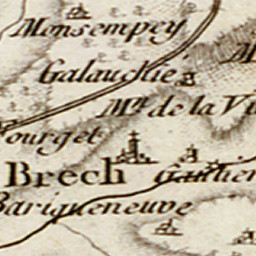 Monsempey
Galauchie
M.in de la Vi
Fourget
Brech
Gautier
Bariqueneuve